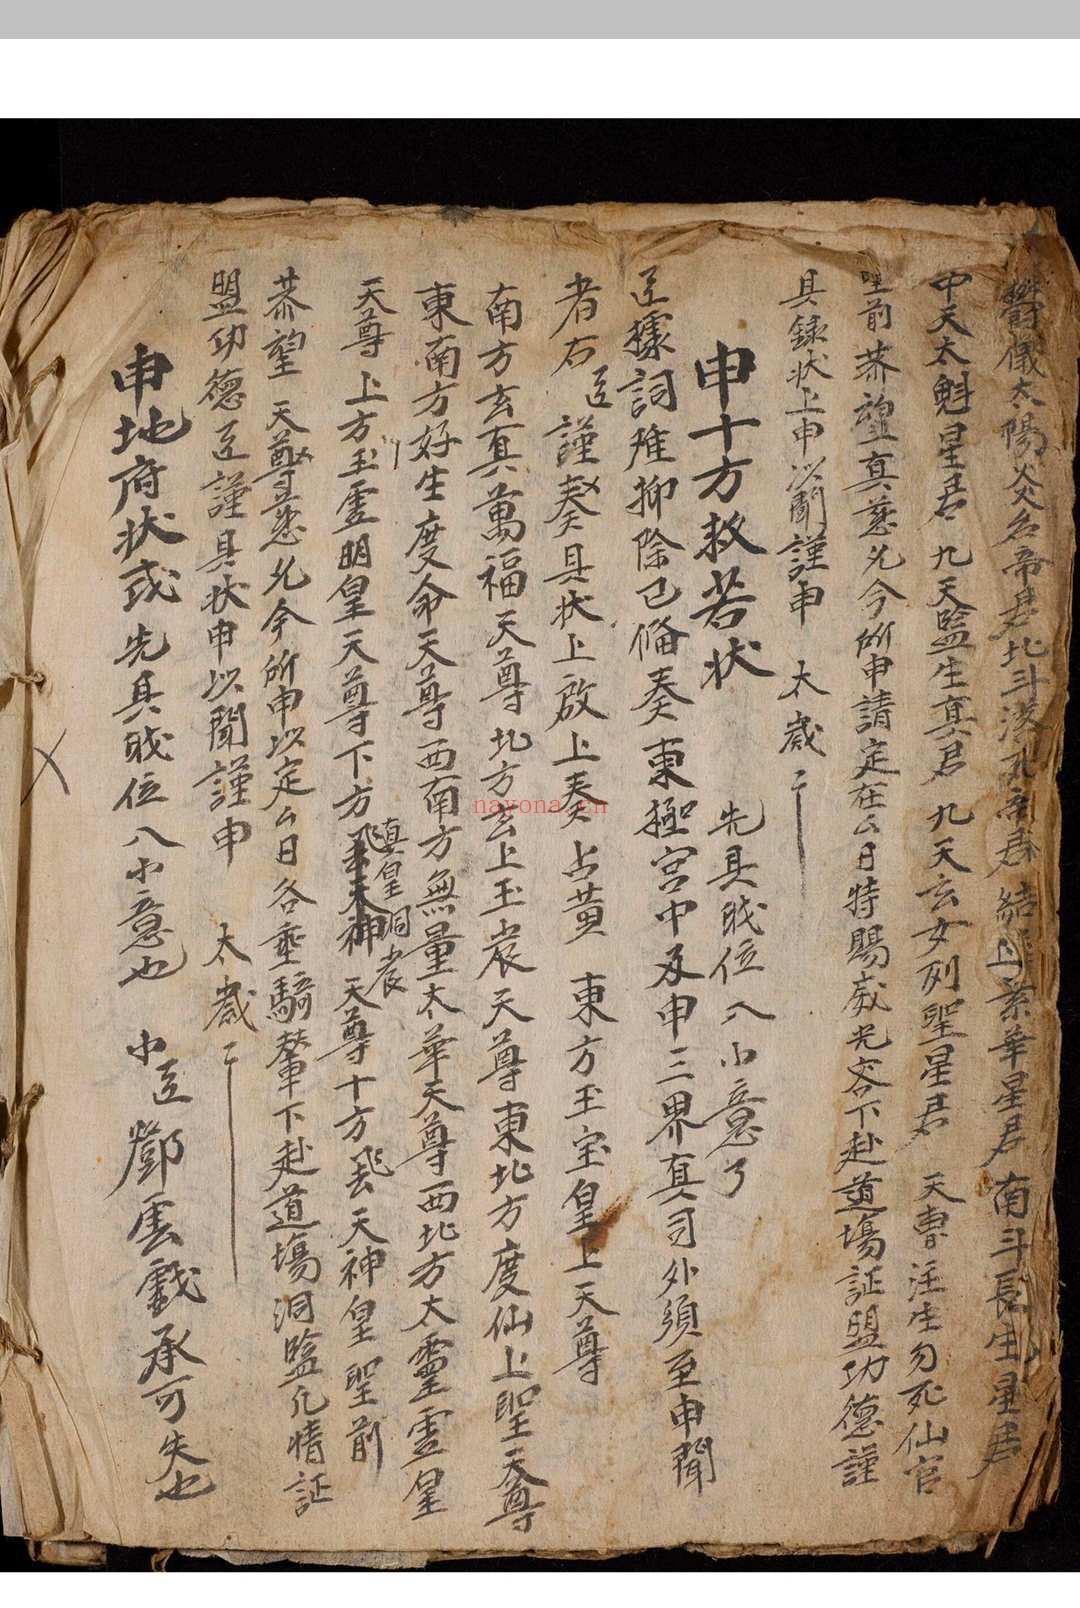 鬱儀太陽炎名帝君北斗 帝君結 華星君南斗長生星君
中天太魁星君九天監生真君九天玄女列聖星君 天曹注生勿死仙官
聖前恭望真慈允今所申請定在厶日特賜威光容下赴道塲証盟功德謹
具錄状上申以聞謹申 太歲
申十方救苦状 先具戝位入小意了
臣據詞难抑除已俻奏東極宮中及申三界真司外須至申聞
者右臣謹奏具状上啟上奏占黄 東方玉宝皇上天尊
南方玄真萬福天尊北方玄上玉宸天尊東北方度仙上聖天尊
東南方好生度命天尊西南方無量太華天尊西北方太靈虛皇
天尊上方玉虛明皇天尊下方真皇洞宸天尊十方飛天神皇聖前
恭望 天尊慈允今所申以定厶日各乘騎輦下赴道塲洞監凡情証
盟功德臣謹具状申以聞謹申 太歲
申地府状或 先具戝位八小意也 小臣鄧雲戲承可失也
nayona.cn